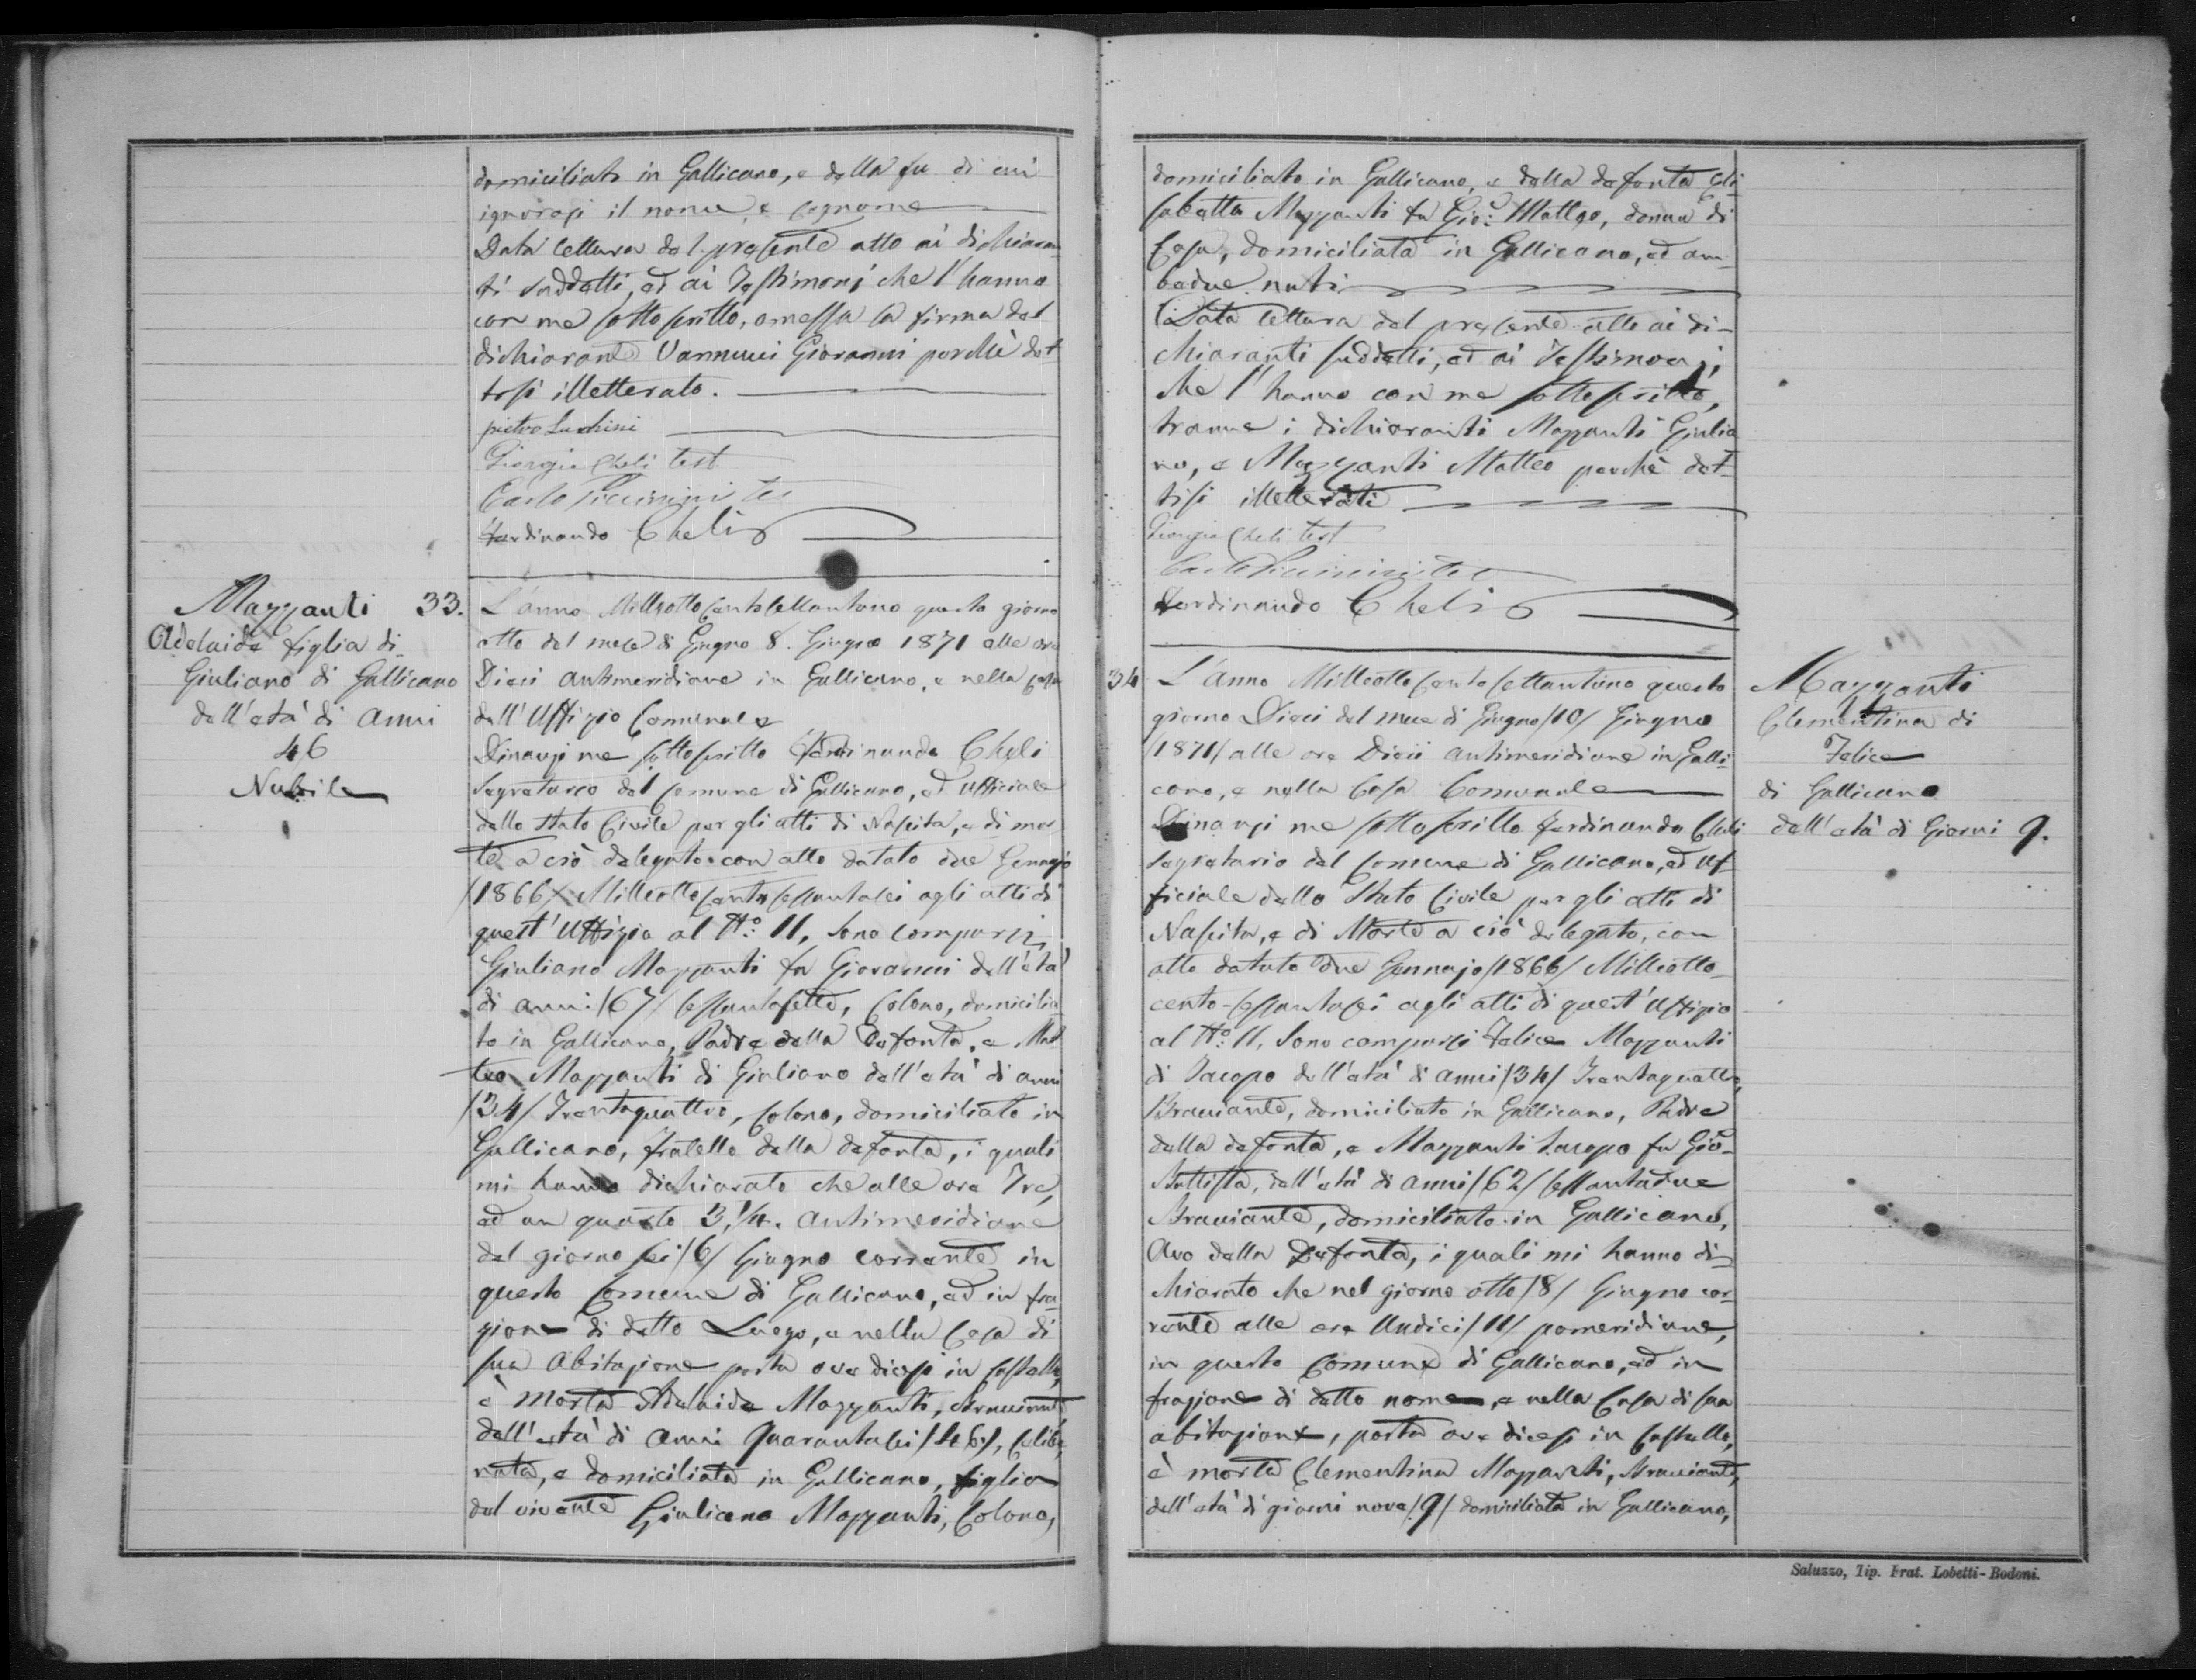 domiciliato in Gallicano, e della fu di cui
ignorasi il nome, e cognome
Data lettura del presente atto ai dichiaran-
ti suddetti, ed ai Testimonj che l'hanno
con me sottoscritto, omessa la firma del
dichiarante Vannucci Giovanni perchè det-
tosi illetterato.
pietro Luchini
Giorgio Cheli test
Carlo Piccinini tes
Ferdinando Cheli
Mazzanti
Adelaide figlia di
Giuliano di Gallicano
dell'età di anni
46
Nubile
33.
L'anno Milleottocentosettantuno questo giorno
otto del mese di Giugno 8. Giugno 1871 alle ore
Dieci antimeridiane in Gallicano, e nella Casa
dell'Uffizio Comunale
Dinanzi me sottoscritto Ferdinando Cheli
Segretario del Comune di Gallicano, ed Ufficiale
dello Stato Civile per gli atti di Nascita, e di mor
te a ciò delegato con atto datato due Gennajo
/1866/ Milleottocentosessantasei agli atti di
quest'Uffizio al No: 11, Sono comparsi
Giuliano Mazzanti fu Giovanni dell'età
di anni /67/ sessantasette, Colono, domicilia
to in Gallicano, Padre della Defonta, e Mat
teo Mazzanti di Giuliano dell'età di anni
/34/ Trentaquattro, Colono, domiciliato in
Gallicano, fratello della defonta, i quali
mi hanno dichiarato che alle ore Tre,
ed un quarto 3,1/4. antimeridiane
del giorno sei /6/ Giugno corrente in
questo Comune di Gallicano, ed in fra-
zione di detto Luogo, e nella Casa di
sua abitazione posta ove dicesi in Castello,
è morta Adelaide Mazzanti, Bracciante
dell'età di anni Quarantasei /46/, Celibe,
nata, e domiciliata in Gallicano, figlia
del vivente Giuliano Mazzanti, Colono,
domiciliato in Gallicano, e della defonta Eli-
sabetta Mazzanti fu Gio: Matteo, donna di
Casa, domiciliata in Gallicano, ed am-
bedue nati
Data lettura del presente atto ai di-
chiaranti suddetti, ed ai Testimonj,
che l'hanno con me sottoscritto,
tranne i dichiaranti Mazzanti Giulia
no, e Mazzanti Matteo perchè det-
tisi illetterati
Giorgio Cheli test
Carlo Piccinini tes
Ferdinando Cheli
34
L'anno Milleottocentosettantuno questo
giorno Dieci del mese di Giugno /10/ Giugno
/1871/ alle ore Dieci antimeridiane in Galli-
cano, e nella Casa Comunale
Dinanzi me sottoscritto Ferdinando Cheli
Segretario del Comune di Gallicano, ed Uf-
ficiale dello Stato Civile per gli atti di
Nascita, e di Morte a ciò delegato, con
atto datato due Gennajo /1866/ Milleotto-
cento-sessantasei agli atti di quest'Uffizio
al No: 11, Sono comparsi Felice Mazzanti
di Jacopo dell'età di anni /34/ Trentaquattro,
Bracciante, domiciliato in Gallicano, Padre
della defonta, e Mazzanti Jacopo fu Gio-
Battista, dell'età di anni /62/ sessantadue
Bracciante, domiciliato in Gallicano,
Avo della Defonta, i quali mi hanno di-
chiarato che nel giorno otto /8/ Giugno cor-
rente alle ore Undici /11/ pomeridiane,
in questo Comune di Gallicano, ed in
frazione di detto nome, e nella Casa di sua
abitazione, posta ove dicesi in Castello,
è morta Clementina Mazzanti, Bracciante,
dell'età di giorni nove /9/ domiciliata in Gallicano,
Mazzanti
Clementina di
Felice
di Gallicano
dell'età di Giorni 9.
Saluzzo, Tip. Frat. Lobetti-Bodoni.